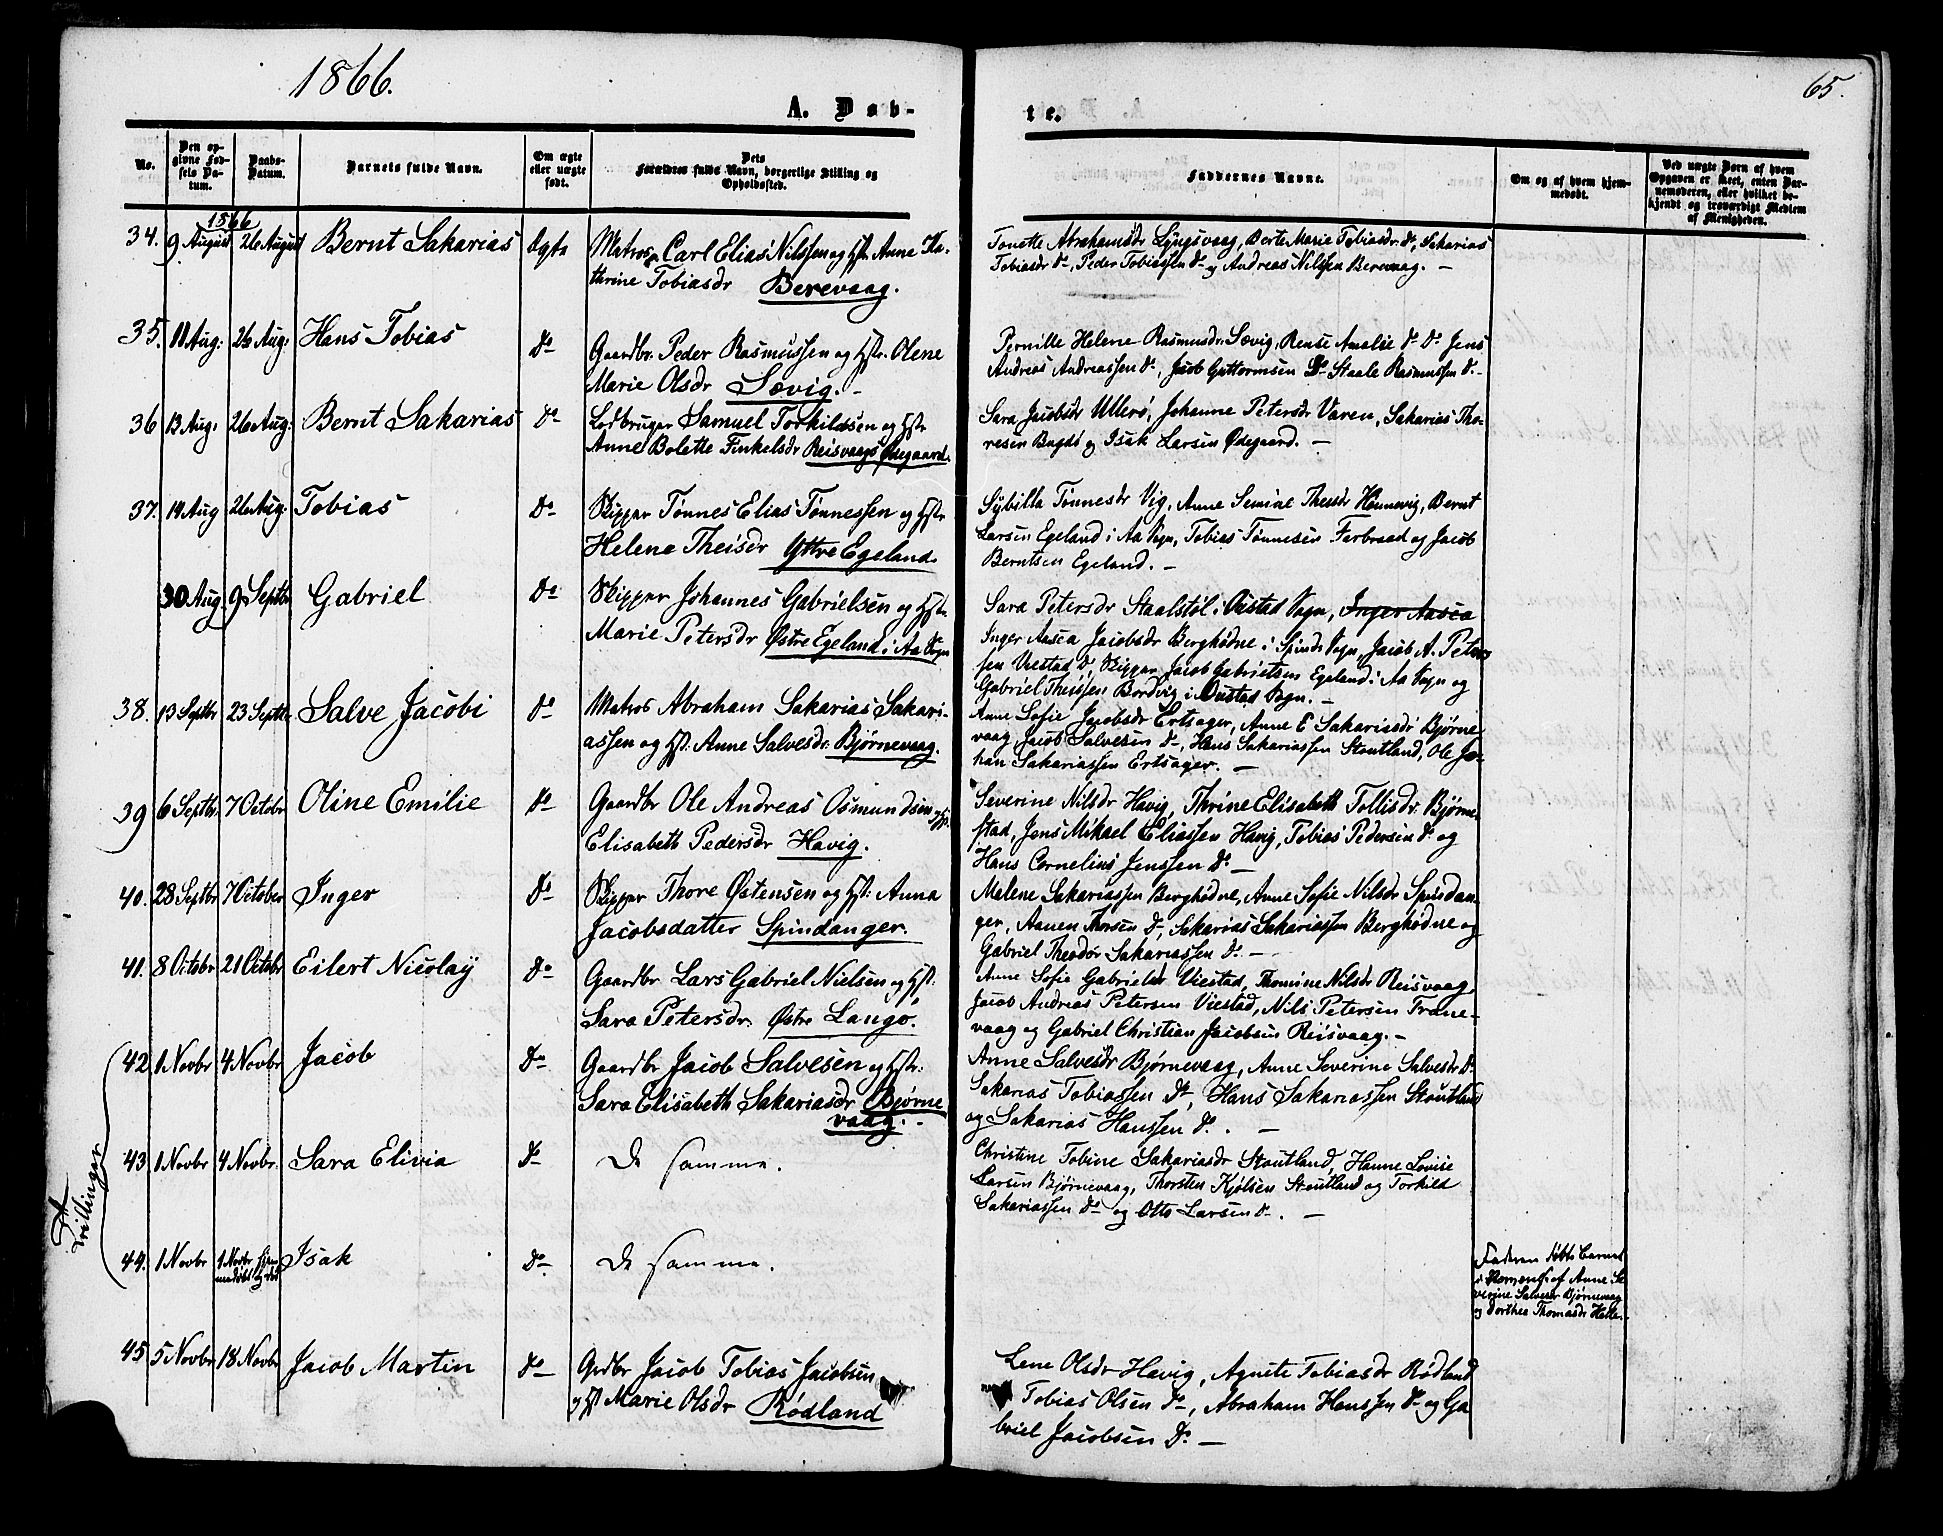 1866.
65.
A. Døb-
te.
No.
Den op-
givne Fød-
sels Da-
tum.
Daabs-
Datum.
Barnets fulde Navn.
Om ægte
eller uægte
født.
Dets
Forældres fulde Navn, borgerlige Stilling og
Opholdssted.
Faddernes Navne.
Om og af hvem hjem-
medøbt.
Ved uægte Børn af hvem
Opgaven er skeet, enten Bar-
nemoderen, eller hvilket be-
kjendt og troværdigt Medlem
af Menigheden.
1866
34. 9 August 26 August Bernt Sakarias Ægte Matros Carl Elias Nilssen og Hst: Anne Ka-
thrine Tobiasdr Berevaag.
Tonette Abrahamsdr Lyngsvaag, Berte Marie Tobiasdr do, Sakarias
Tobiasdr do, Peder Tobiassen do og Andreas Nilsen Berevaag. —
35. 11 Aug: 26 Aug: Hans Tobias Do Gaardbr. Peder Rasmussen og Hstr. Olene
Marie Olsdr Sævig. -
Pernille Helene Rasmusdr. Sævig, Rense Amalie do Do Jens
Andreas Andreassen do, Jacob Guttormsen Do Staale Rasmussen do. -
36 13 Aug. 26 Aug: Bernt Sakarias Do Lodbruger Samuel Torkildsen og Hstr
Anne Bolette Finkelsdr Reisvaags Ødegaard.
Sara Jacobsdr Ullerø, Johanne Petersdr Varen, Sakarias Tho-
resen Bagdø og Isak Larsen Ødegaard. —
37. 19 Aug 26 Aug: Tobias Do Skipper Tønnes Elias Tønnessen og Hstr
Helene Theisdr Yttre Egeland.
Sybilla Tønnesdr Vig, Anne Semine Theisdr Hønnevig, Bernt
Larsen Egeland i Aa Sogn, Tobias Tønnesen Farbraad og Jacob
Berntsen Egeland. —
30 Aug 9 Septbr Gabriel Do Skipper Johannes Gabrielsen og Hstr.
Marie Petersdr Østre Egeland i Aa Sogn
Sara Petersdr Staalstøl i Oustad Sogn, Inger Aasea
Inger Aasea Jacobsdr Berghødne i Spinds Sogn, Jacob A. Peter-
sen Viestad do, Skipper Jacob Gabrielsen Egeland i Aa Sogn og
Gabriel Theissen Bordvig i Oustad Sogn. —
38. 13 Septbr 23 Septbr. Salve Jacobi Do Matros Abraham Sakarias Sakari-
assen og Hst: Anne Salvesdr. Bjørnevaag.
Anne Sofie Jacobsdr Ertsager, Anne E Sakariasdr Bjørne
vaag, Jacob Salvesen do, Hans Sakariassen Stoutland, Ole Jo-
han Sakariassen Ertsager. —
39 6 Septbr. 7 Octobr Oline Emilie Do Gaardbr Ole Andreas Osmundsen og Hst.
Elisabeth Pedersdr Havig.
Severine Nilsdr Havig, Thrine Elisabeth Tollisdr. Bjørne-
stad, Jens Mikael Eliassen Havig, Tobias Pedersen do og
Hans Cornelius Jenssen do —
40. 28 Septbr 7 October Inger Do Skipper Thore Østensen og Hst: Anna
Jacobsdatter Spindanger.
Malene Sakariassen Berghødne, Anne Sofie Nilsdr Spindan-
ger, Aanen Thorsen do, Sakarias Sakariassen Berghødne og
Gabriel Theodor Sakariassen do. —
41. 8 Octobr 21 Octobr Eilert Nicolay Do Gaardbr Lars Gabriel Nielsen og Hst:
Sara Petersdr. Østre Langø.
Anne Sofie Gabrielsdr Viestad, Thomine Nilsdr Reisvaag,
Jacob Andreas Petersen Viestad, Nils Petersen Trane-
vaag og Gabriel Christian Jacobsen Reisvaag. —
Trillinger
42 1 Novbr 4 Novbr Jacob Do Gaardbr Jacob Salvesen og Hstr:
Sara Elisabeth Sakariasdr Bjørne
vaag. -
Anne Salvesdr Bjørnevaag, Anne Severine Salvesdr do
Sakarias Tobiassen do, Hans Sakariassen Stoutland
og Sakarias Hanssen do. —
43. 1 Novbr 4 Novbr. Sara Elivia Do De samme.
Christine Tobine Sakariasdr Stoutland, Hanne Lovise
Larsen Bjørnevaag, Thorsten Kjølsen Stoutland og Torkild
Sakariassen do og Otto Larsen do. —
44. 1 Novbr 1 Novbr hjem
medøbt og død Isak Do De samme.
Faderen døbte Barnet
i Nærværelse af Anne Se
verine Salvesdr Bjørnevaag
og Dorthea Thomasdr Helle.
45 5 Novbr 18 Novbr Jacob Martin Do Grdbr Jacob Tobias Jacobsen
og Hst Marie Olsdr Rødland
Lene Olsdr Havig, Agnete Tobiasdr Rødland
Tobias Olsen do, Abraham Hanssen do og Ga
briel Jacobsen Do. —